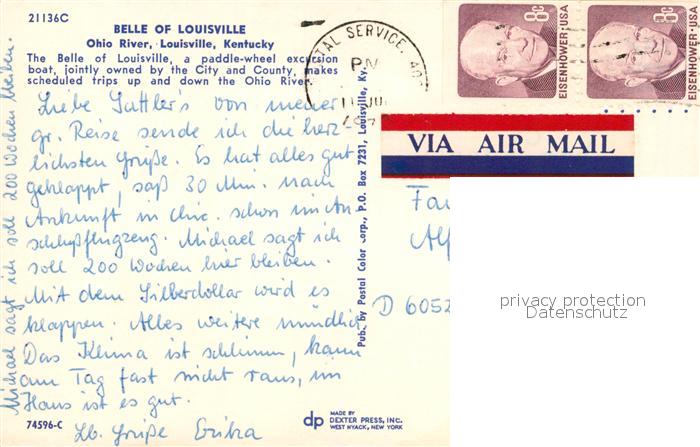 21136C
BELLE OF LOUISVILLE
Ohio River, Louisville, Kentucky
The Belle of Louisville, a paddle-wheel excursion
boat, jointly owned by the City and County, makes
scheduled trips up and down the Ohio River.
Liebe Sattler's von meiner
gr. Reise sende ich die herz-
lichsten Grüße. Es hat alles gut
geklappt, saß 30 Min. nach
Ankunft in Chic. schon im An-
schlußflugzeug. Michael sagt ich
soll 200 Wochen hier bleiben.
Mit dem Silberdollar wird es
klappen. Alles weitere mündlich
Das Klima ist schlimm, kann
am Tag fast nicht raus, im
Haus ist es gut.
Lb. Grüße Erika
74596-C
Michael sagt ich soll 200 Wochen bleiben.
Pub. by Postal Color Corp., P.O. Box 7231, Louisville, Ky.
dp MADE BY
DEXTER PRESS, INC.
WEST NYACK, NEW YORK
POSTAL SERVICE
PM
8c
EISENHOWER·USA
8c
EISENHOWER·USA
VIA AIR MAIL
D 6052
privacy protection
Datenschutz